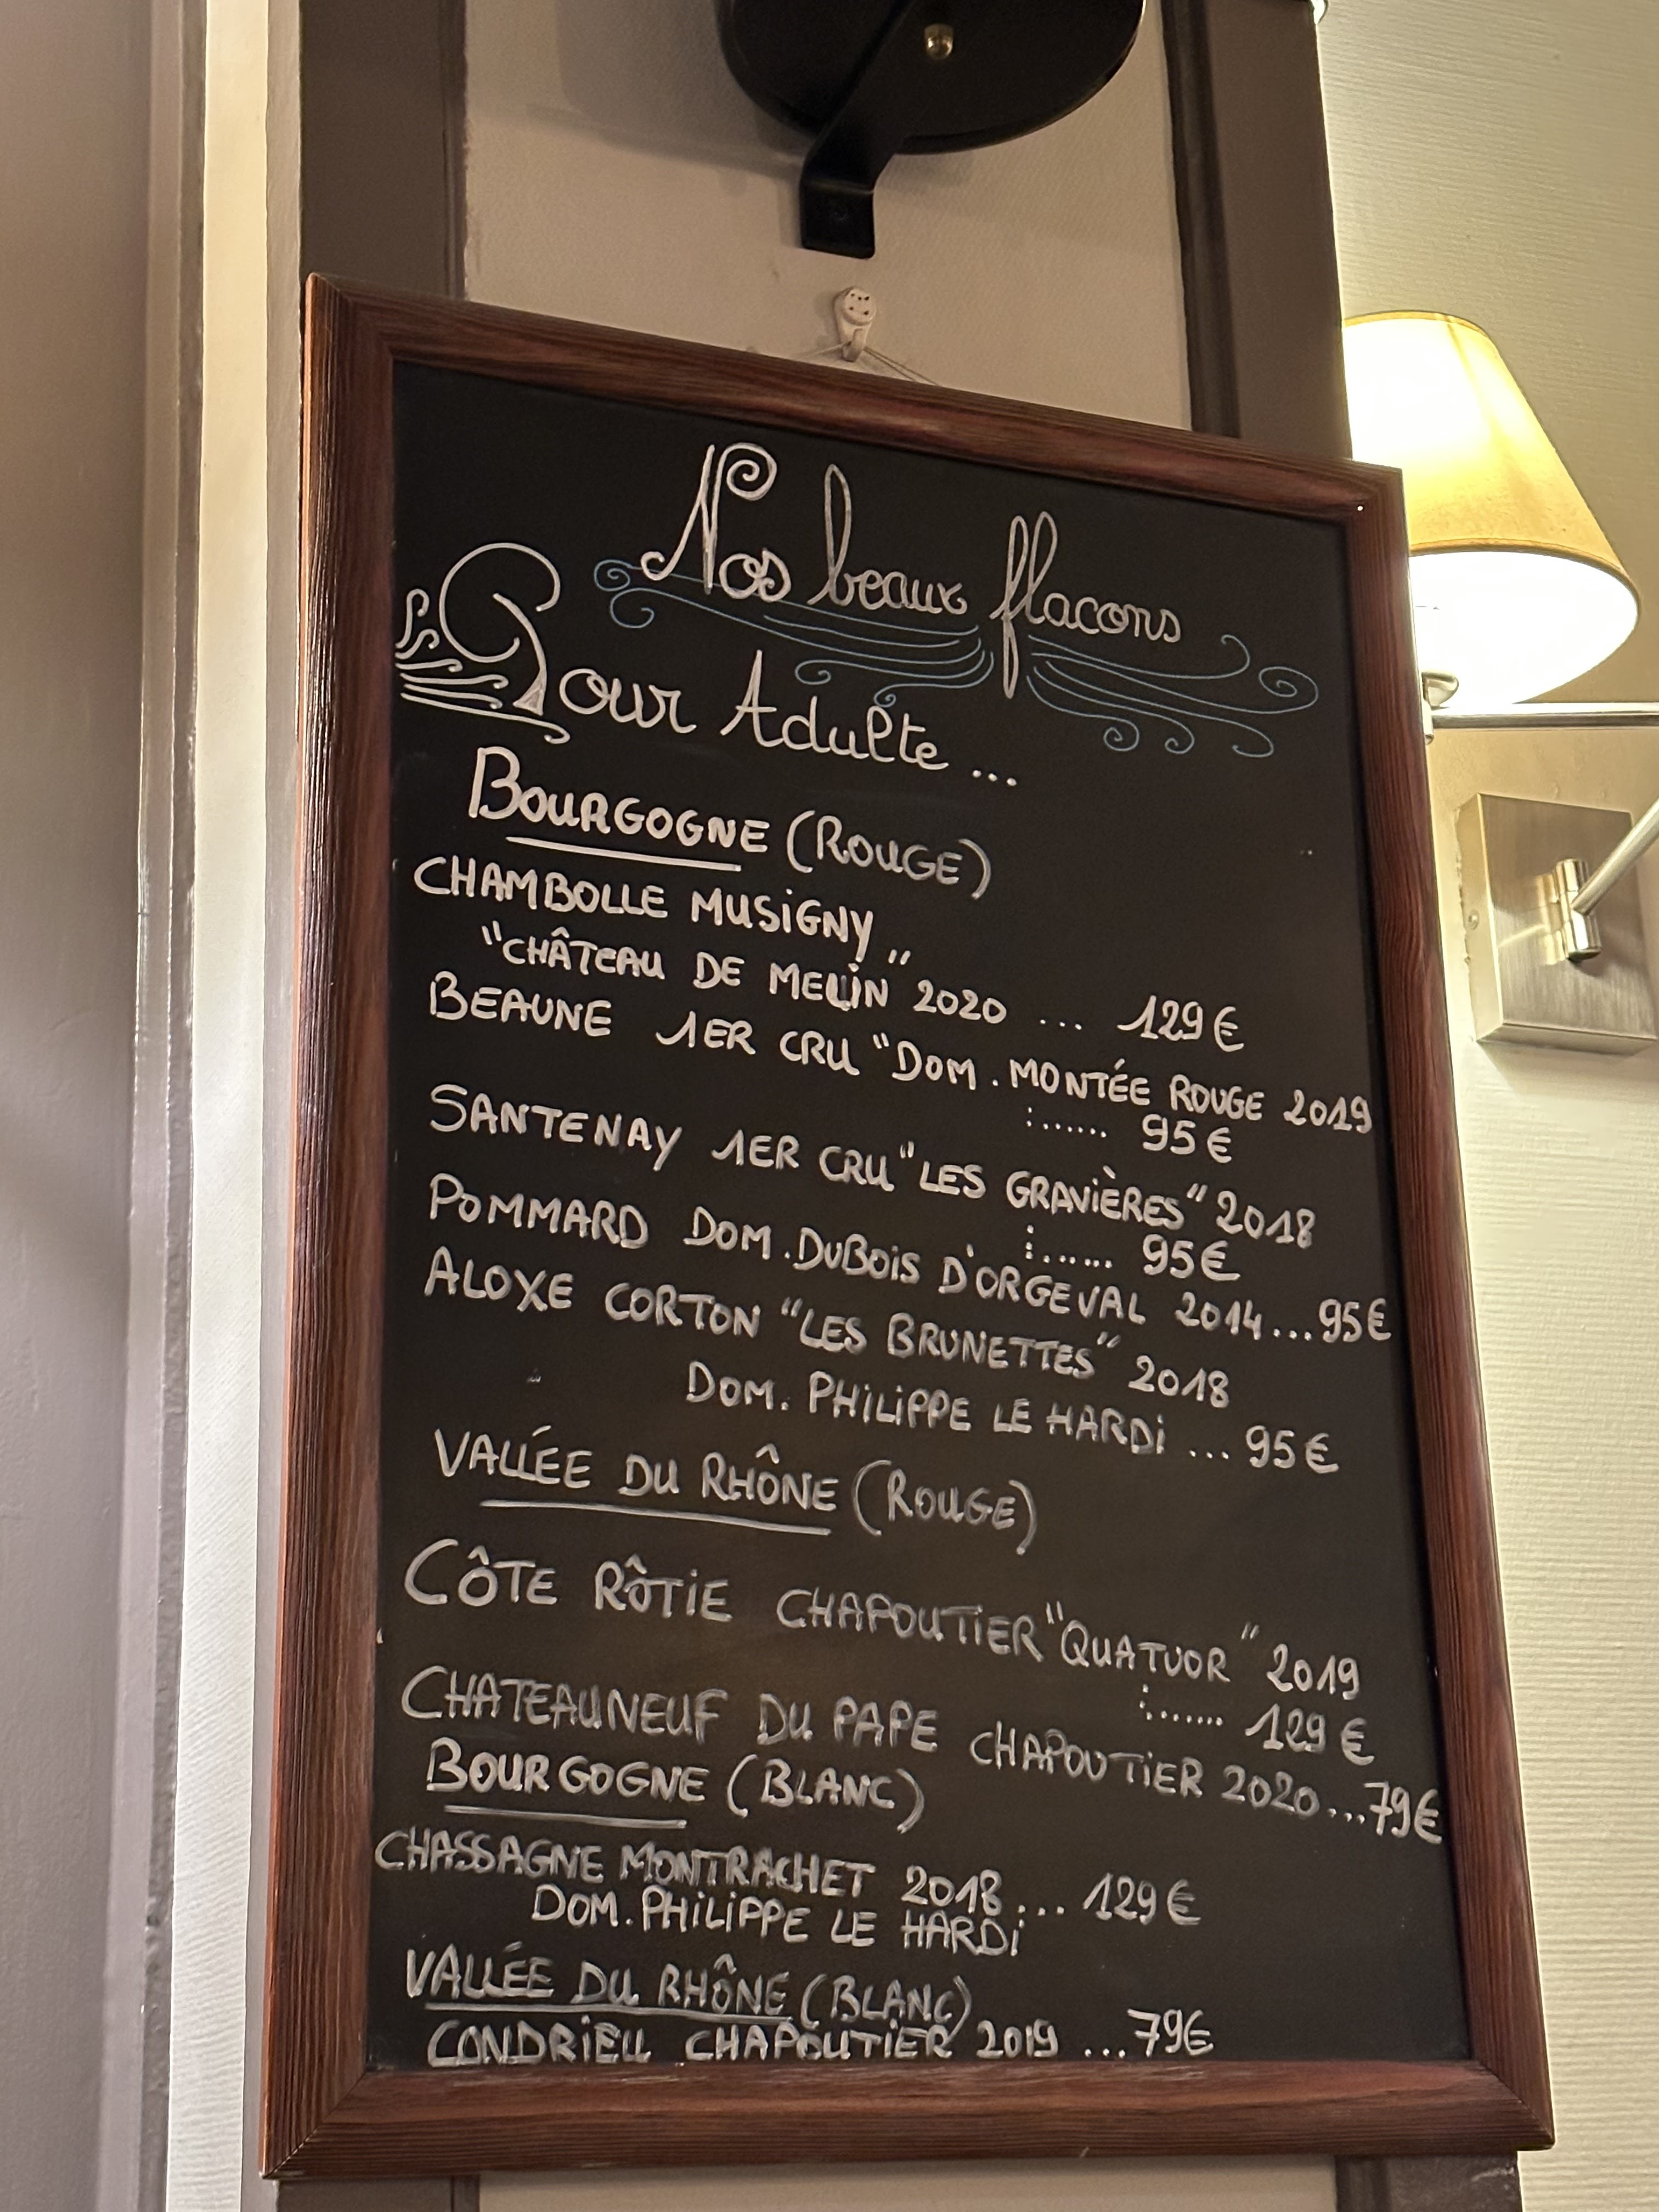 Nos beaux flacons
Pour Adulte ...
BOURGOGNE (ROUGE)
CHAMBOLLE MUSIGNY "
"CHÂTEAU DE MELIN" 2020 ... 129€
BEAUNE 1ER CRU "DOM. MONTÉE ROUGE 2019
:...... 95€
SANTENAY 1ER CRU "LES GRAVIÈRES" 2018
:...... 95€
POMMARD DOM. DUBOIS D'ORGEVAL 2014...95€
ALOXE CORTON "LES BRUNETTES" 2018
DOM. PHILIPPE LE HARDI ... 95€
VALLÉE DU RHÔNE (ROUGE)
CÔTE RÔTIE CHAPOUTIER "QUATUOR" 2019
:....... 129€
CHATEAUNEUF DU PAPE CHAPOUTIER 2020...79€
BOURGOGNE (BLANC)
CHASSAGNE MONTRACHET 2018... 129€
DOM. PHILIPPE LE HARDI
VALLÉE DU RHÔNE (BLANC)
CONDRIEU CHAPOUTIER 2019 ...79€